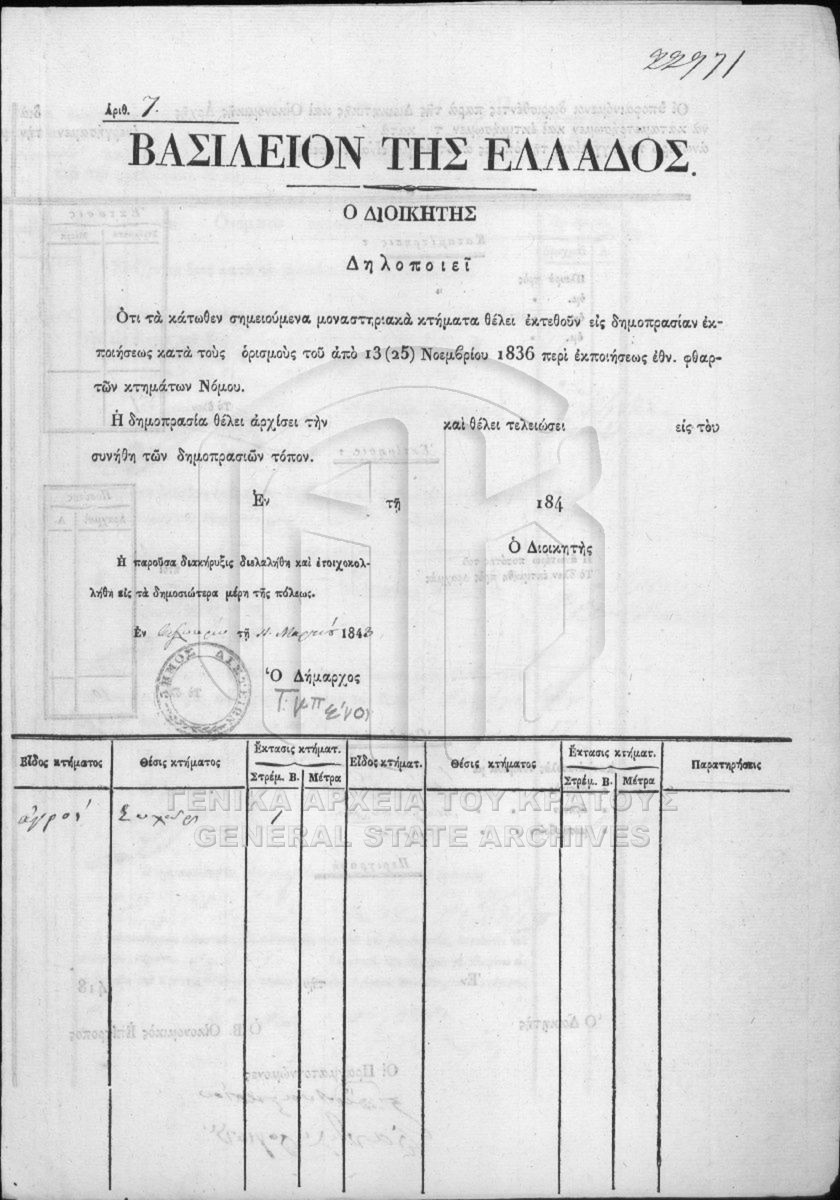 22971
Ἀριθ. 7.
ΒΑΣΙΛΕΙΟΝ ΤΗΣ ΕΛΛΑΔΟΣ.
Ὁ ΔΙΟΙΚΗΤΗΣ
Δηλοποιεῖ
Ὅτι τὰ κάτωθεν σημειούμενα μοναστηριακὰ κτήματα θέλει ἐκτεθοῦν εἰς δημοπρασίαν ἐκ-
ποιήσεως κατὰ τοὺς ὁρισμοὺς τοῦ ἀπὸ 13 (25) Νοεμβρίου 1836 περὶ ἐκποιήσεως ἐθν. φθαρ-
τῶν κτημάτων Νόμου.
Ἡ δημοπρασία θέλει ἀρχίσει τὴν καὶ θέλει τελειώσει εἰς τοῦ
συνήθη τῶν δημοπρασιῶν τόπον.
Ἐν τῇ 184
Ὁ Διοικητὴς
Ἡ παροῦσα διακήρυξις διελαλήθη καὶ ἐτοιχοκολ-
λήθη εἰς τὰ δημοσιώτερα μέρη τῆς πόλεως.
Ἐν τῇ Μαρτίου 1843
ΔΗΜΟΣ ΔΙΣΤΕΙΩΝ
Ὁ Δήμαρχος
Εἶδος κτήματος Θέσις κτήματος Ἔκτασις κτήματ. Εἶδος κτήματ. Θέσις κτήματος Ἔκτασις κτήματ. Παρατηρήσεις
Στρέμ. Β. Μέτρα Στρέμ. Β. Μέτρα
ἀγροὶ 1
ΓΕΝΙΚΑ ΑΡΧΕΙΑ ΤΟΥ ΚΡΑΤΟΥΣ
GENERAL STATE ARCHIVES